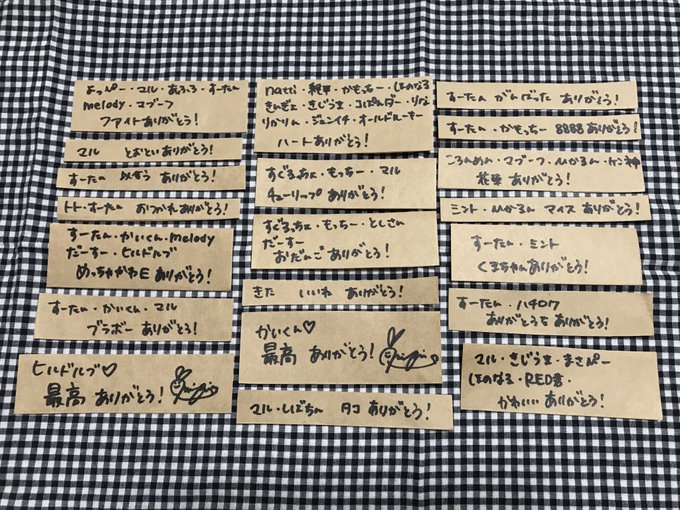 よっぴー・マル・あふろ・すーたん
melody・マブーフ
ファイトありがとう!
マル とおといありがとう!
すーたん ありがとう!
トト・すーたん おつかれありがとう!
すーたん・かいくん・melody
だーすー・ヒルドルブ
めっちゃかわE ありがとう!
すーたん・かいくん・マル
ブラボー ありがとう!
ヒルドルブ♡
最高 ありがとう!
natti・・かもっちー・ほのなる
きんぎょ・きじうま・コぱんダー・りな
りかりん・ジュンイチ・オールドルーキー
ハートありがとう!
すぐるっちょ・もっちー・マル
チューリップ ありがとう!
すぐるっちょ・もっちー・としさん
だーすー
おだんご ありがとう!
きた いいね ありがとう!
かいくん♡
最高 ありがとう!
マル・しばちん タコ ありがとう!
すーたん がんばった ありがとう!
すーたん・かもっちー 8888 ありがとう!
ころんめん・マブーフ・ひかるん・ケン神
花束 ありがとう!
ミント・ひかるん マイス ありがとう!
すーたん・ミント
くまちゃんありがとう!
すーたん・ハチロク
ありがとうを ありがとう!
マル・きじうま・まさぴー
ほのなる・RED吉・
かわいい ありがとう!